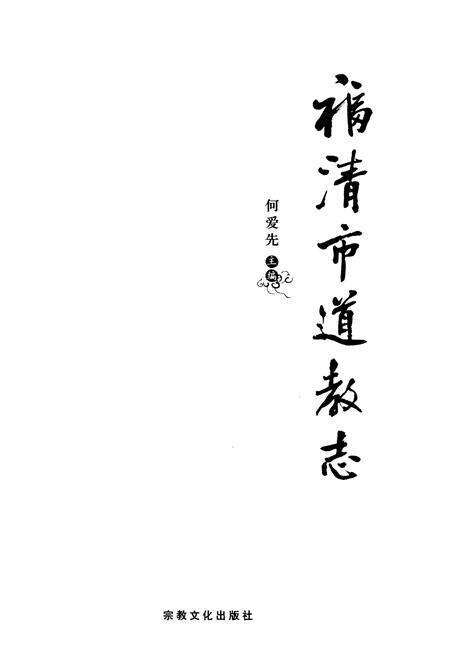 福清市道教志
何爱先 主编
宗教文化出版社